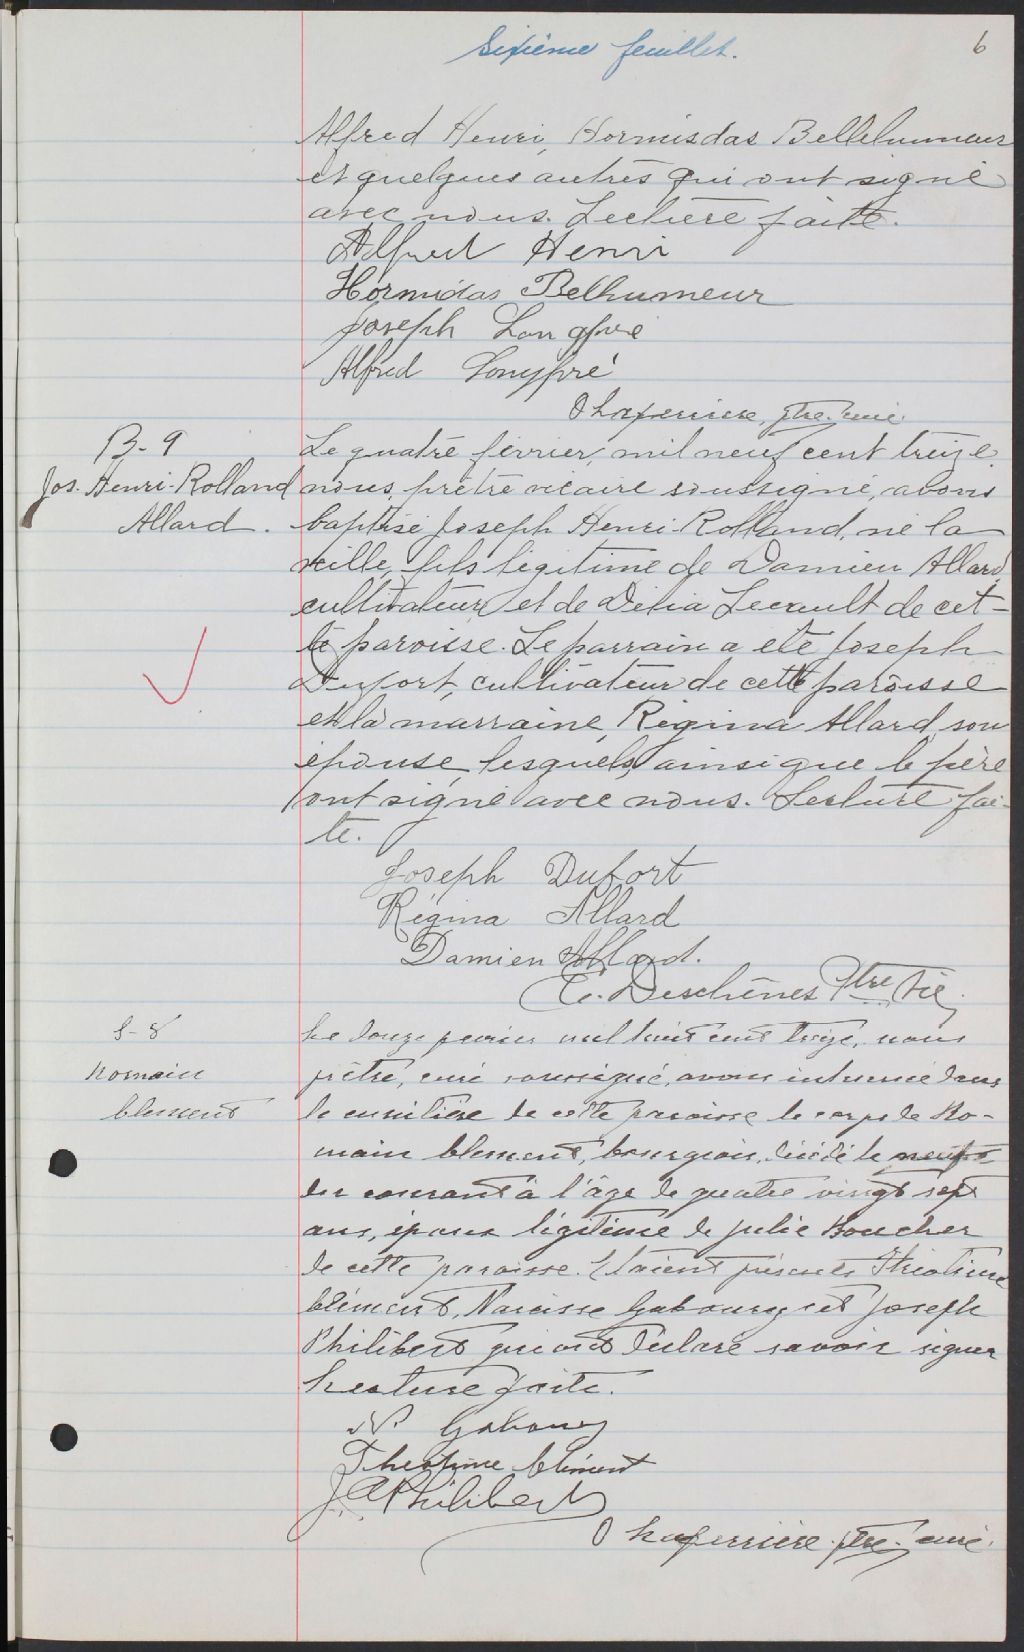 Sixième feuillet.
6
Alfred Henri, Hormisdas Bellehumeur
et quelques autres qui ont signé
avec nous. Lecture faite.
Alfred Henri
Hormidas Belhumeur
Joseph Longpré
Alfred Longpré
O Laferrière, ptre. curé.
B-9
Jos. Henri-Rolland
Allard.
Le quatre février, mil neuf cent treize,
nous, prêtre vicaire soussigné, avons
baptisé Joseph Henri-Rolland, né la
veille, fils légitime de Damien Allard,
cultivateur et de Délia Lecault de cet-
te paroisse. Le parrain a été Joseph
Dufort, cultivateur de cette paroisse
et la marraine, Régina Allard, son
épouse, lesquels, ainsi que le père
ont signé avec nous. Lecture fai-
te.
Joseph Dufort
Régina Allard
Damien Allard.
E. Deschênes Ptre Vic.
S-8
Romain
Clement
Le douze février mil huit cent treize, nous
prêtre, curé soussigné, avons inhumé dans
le cimitière de cette paroisse le corps de Ro-
main Clement, bourgeois, décédé le neuf
du courant à l'âge de quatre vingt sept
ans, époux légitime de Julie Boucher
de cette paroisse. Etaient présents Théotime
Clément, Narcisse Gaboury et Joseph
Philibert qui ont déclaré savoir signer
Lecture faite.
N. Gaboury
Theotime Clément
J A Philibert
O Laferrière, ptre. curé.